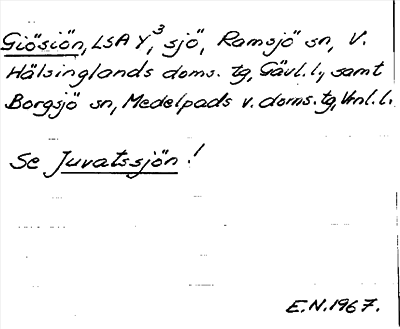 Giösiön, LSA Y,³ sjö, Ramsjö sn, V.
Hälsinglands doms. tg, Gävl. l., samt
Borgsjö sn, Medelpads v. doms. tg, Vnl. l.
Se Juvatssjön!
E.N. 1967.